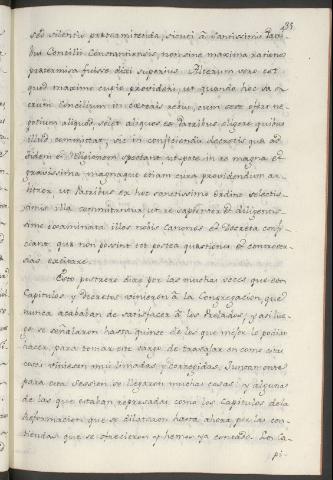 495
sed silentio praetermittenda, sicuti â Sanctissimis Patri-
bus Concilii Constantiensis, non sine maxima ratione
praetermissa fuisse dixi superius. Alterum vero est
quod maxime cupio provideri, ut quando hoc sa-
crum Concilium in caeteris actus, cum sese offert ne-
gotium aliquod solet aliquos ex Patribus eligere quibus
illud committat; sic in conficiendis decretis quae ad
fidem et Religionem spectant ut pote in re magna et
gravissima magnaque etiam cura providendum ar-
bitror, ut Patribus ex hoc sanctissimo Ordine selectis-
simis illa committantur, ut re sapienter et diligentis-
sime examinata illos nobis Canones et Decreta confi-
ciant, quae non possint tot postea quaestiones et controver-
sias excitare.
Esto postrero dixo por las muchas veces que estos
Capitulos y Decretos vinieron â la Congregacion, que
nunca acababan de satisfacer â los Prelados; y asi lue-
go se señalaron hasta quince de los que mejor lo podian
hacer, para tomar este cargo de trabajar en como estas
cosas viniesen mui limadas y corregidas. Juntaronse
para esta Session, se llegaron muchas cosas: y algunas
de las que estaban represadas como los Capitulos de la
Reformacion que se dilataron hasta ahora por las con-
tiendas que se ofrecieron y hemos ya contado. Los Ca-
pi-